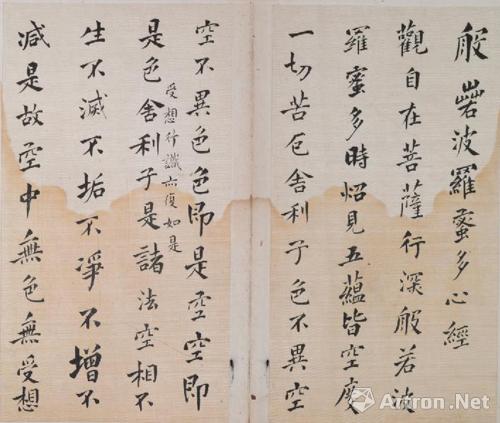 般若波羅蜜多心經
觀自在菩薩行深般若波
羅蜜多時照見五蘊皆空度
一切苦厄舍利子色不異空
空不異色色即是空空即
受想行識亦復如是
是色舍利子是諸法空相不
生不滅不垢不淨不增不
減是故空中無色無受想
Artron.Net